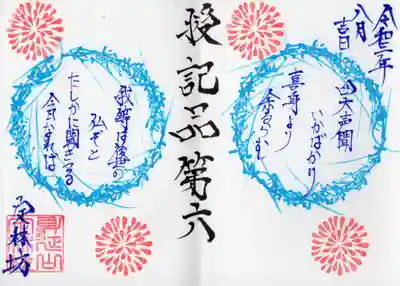 令和三年
八月
吉日
四大声聞
いかばかり
喜身より
余るらむ
授記品第六
我等は後の
仏ぞと
たしかに聞きつる
今日なれば
覚林坊
身延山